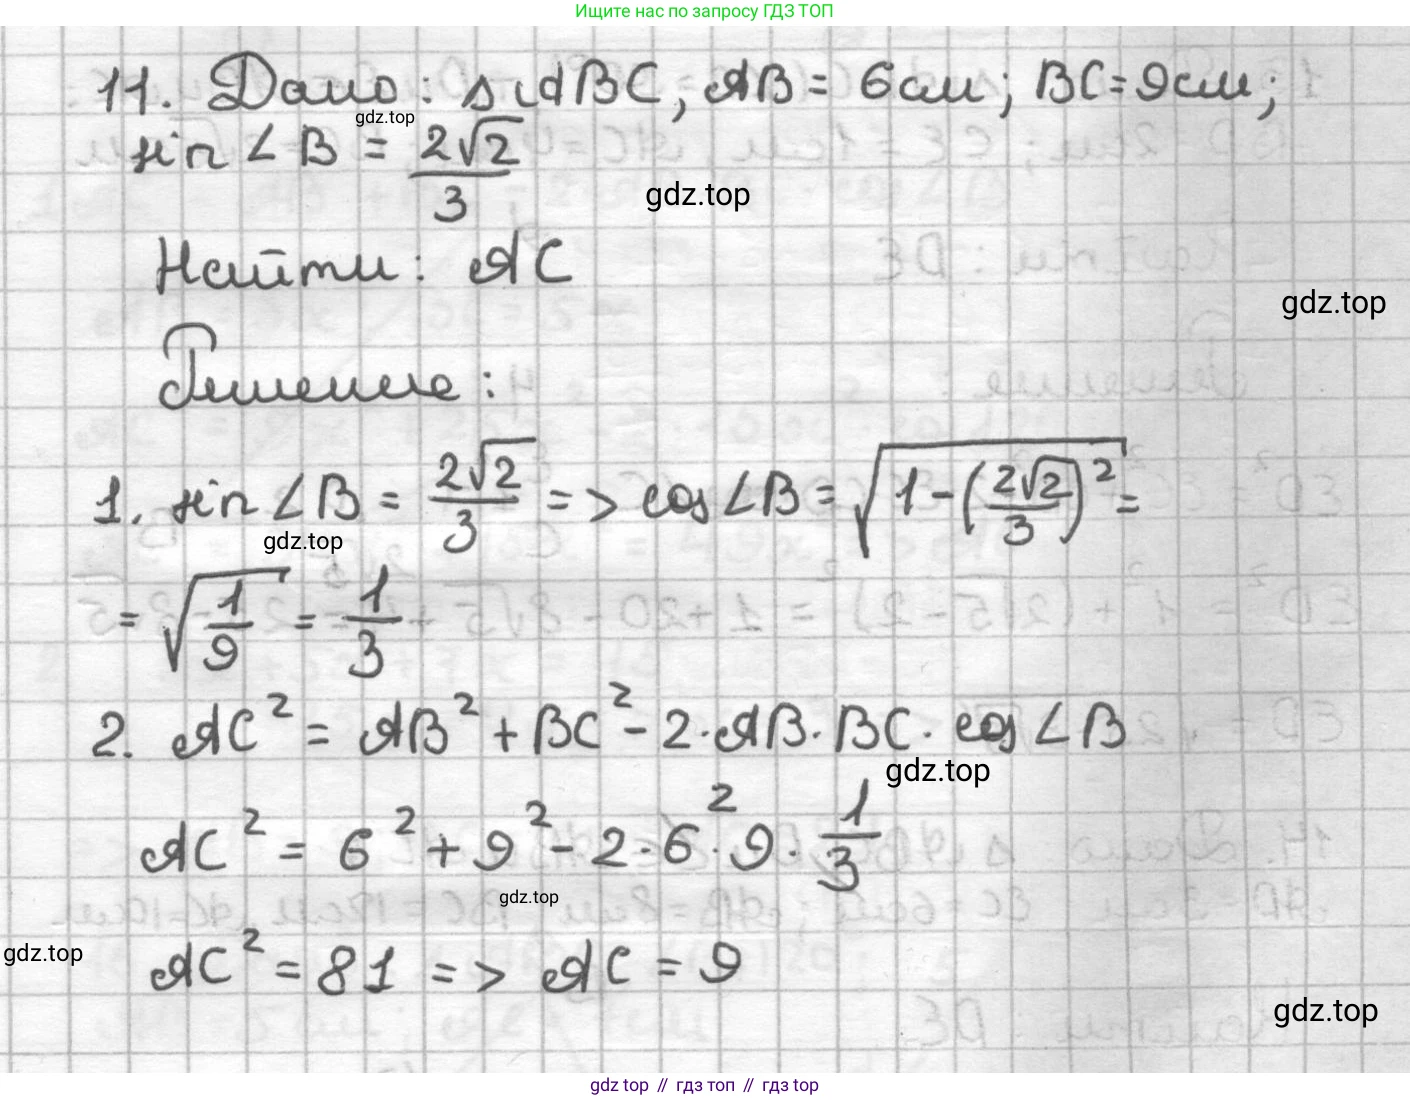 Ищите нас по запросу ГДЗ ТОП
11. Дано: ΔABC, AB = 6см; BC = 9см;
gdz.top
sin ∠B = 2√2/3
gdz.top
Найти: AC
gdz.top
Решение:
1. sin ∠B = 2√2/3 => cos ∠B = √(1 - (2√2/3)²) =
gdz.top
= √(1/9) = 1/3
2. AC² = AB² + BC² - 2·AB·BC·cos ∠B
gdz.top
AC² = 6² + 9² - 2·6²·9·1/3
gdz.top
gdz.top
AC² = 81 => AC = 9
gdz.top
gdz top // гдз топ // гдз top